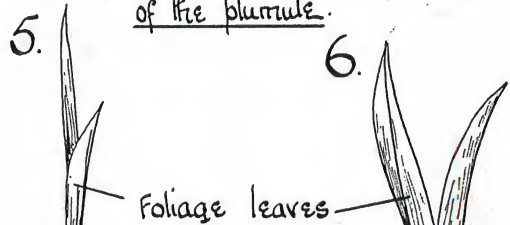 of the plumule.
5.
6.
Foliage leaves